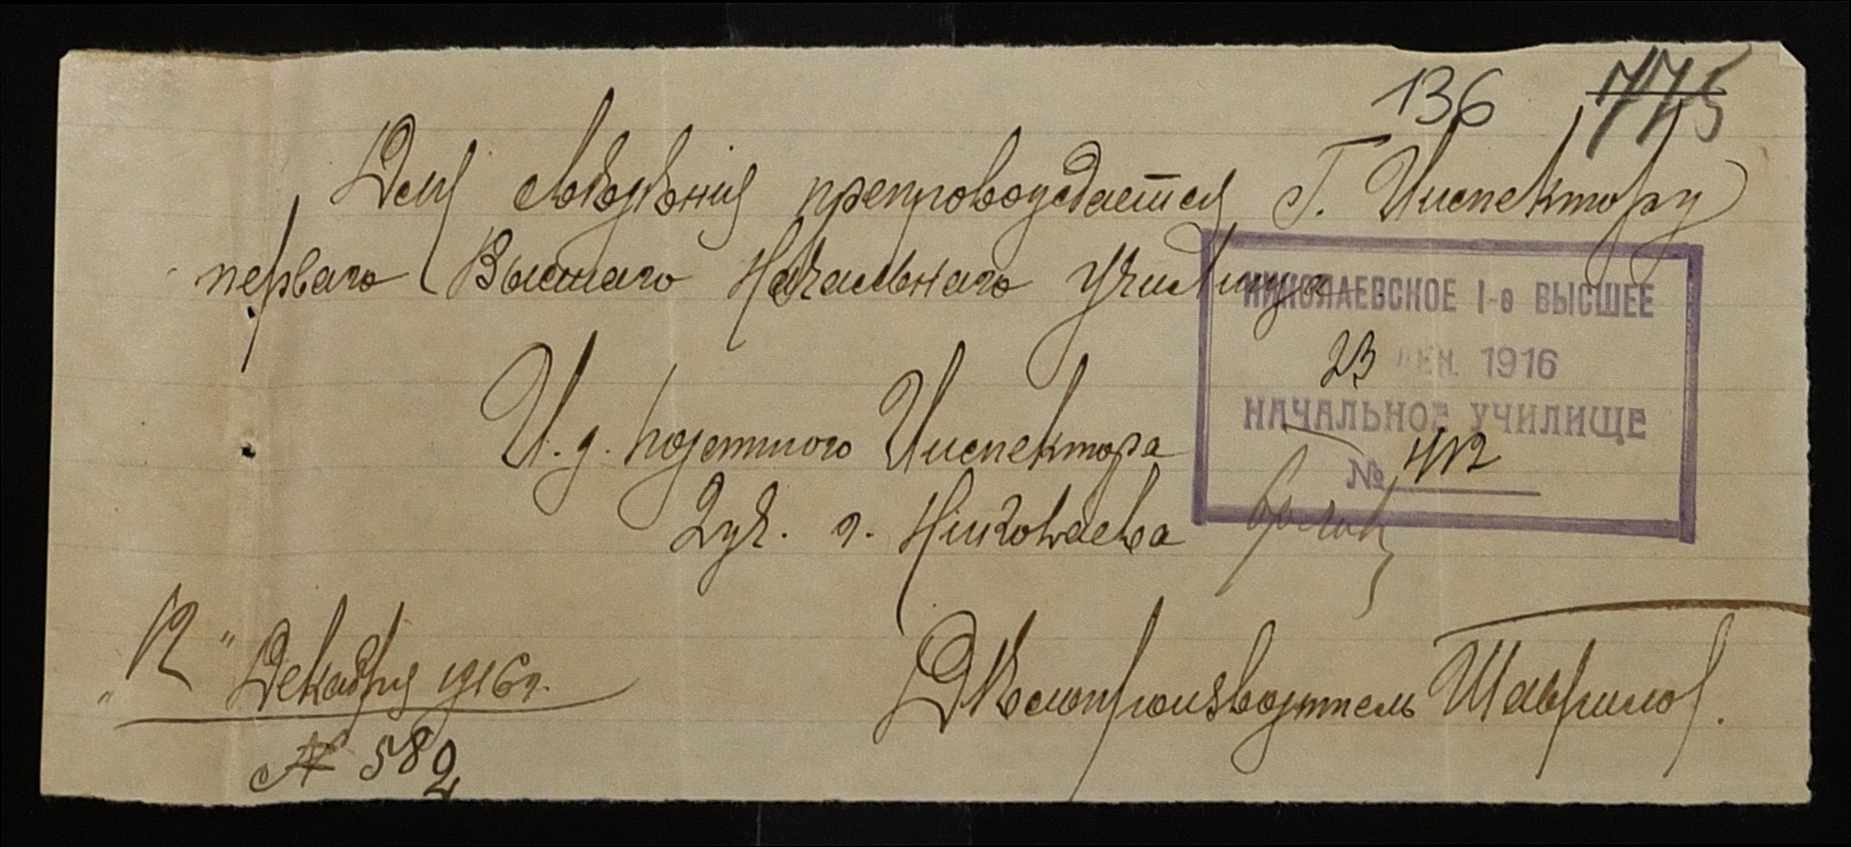 136 775
Для свѣдѣнія препровождается Г. Инспектору
перваго Высшаго Начальнаго Училища
НИКОЛАЕВСКОЕ I-е ВЫСШЕЕ
23 ДЕК. 1916
НАЧАЛЬНОЕ УЧИЛИЩЕ
№ 412
И. д. Податного Инспектора
2 уч. г. Николаева
"12" Декабря 1916 г.
№ 582
Дѣлопроизводитель